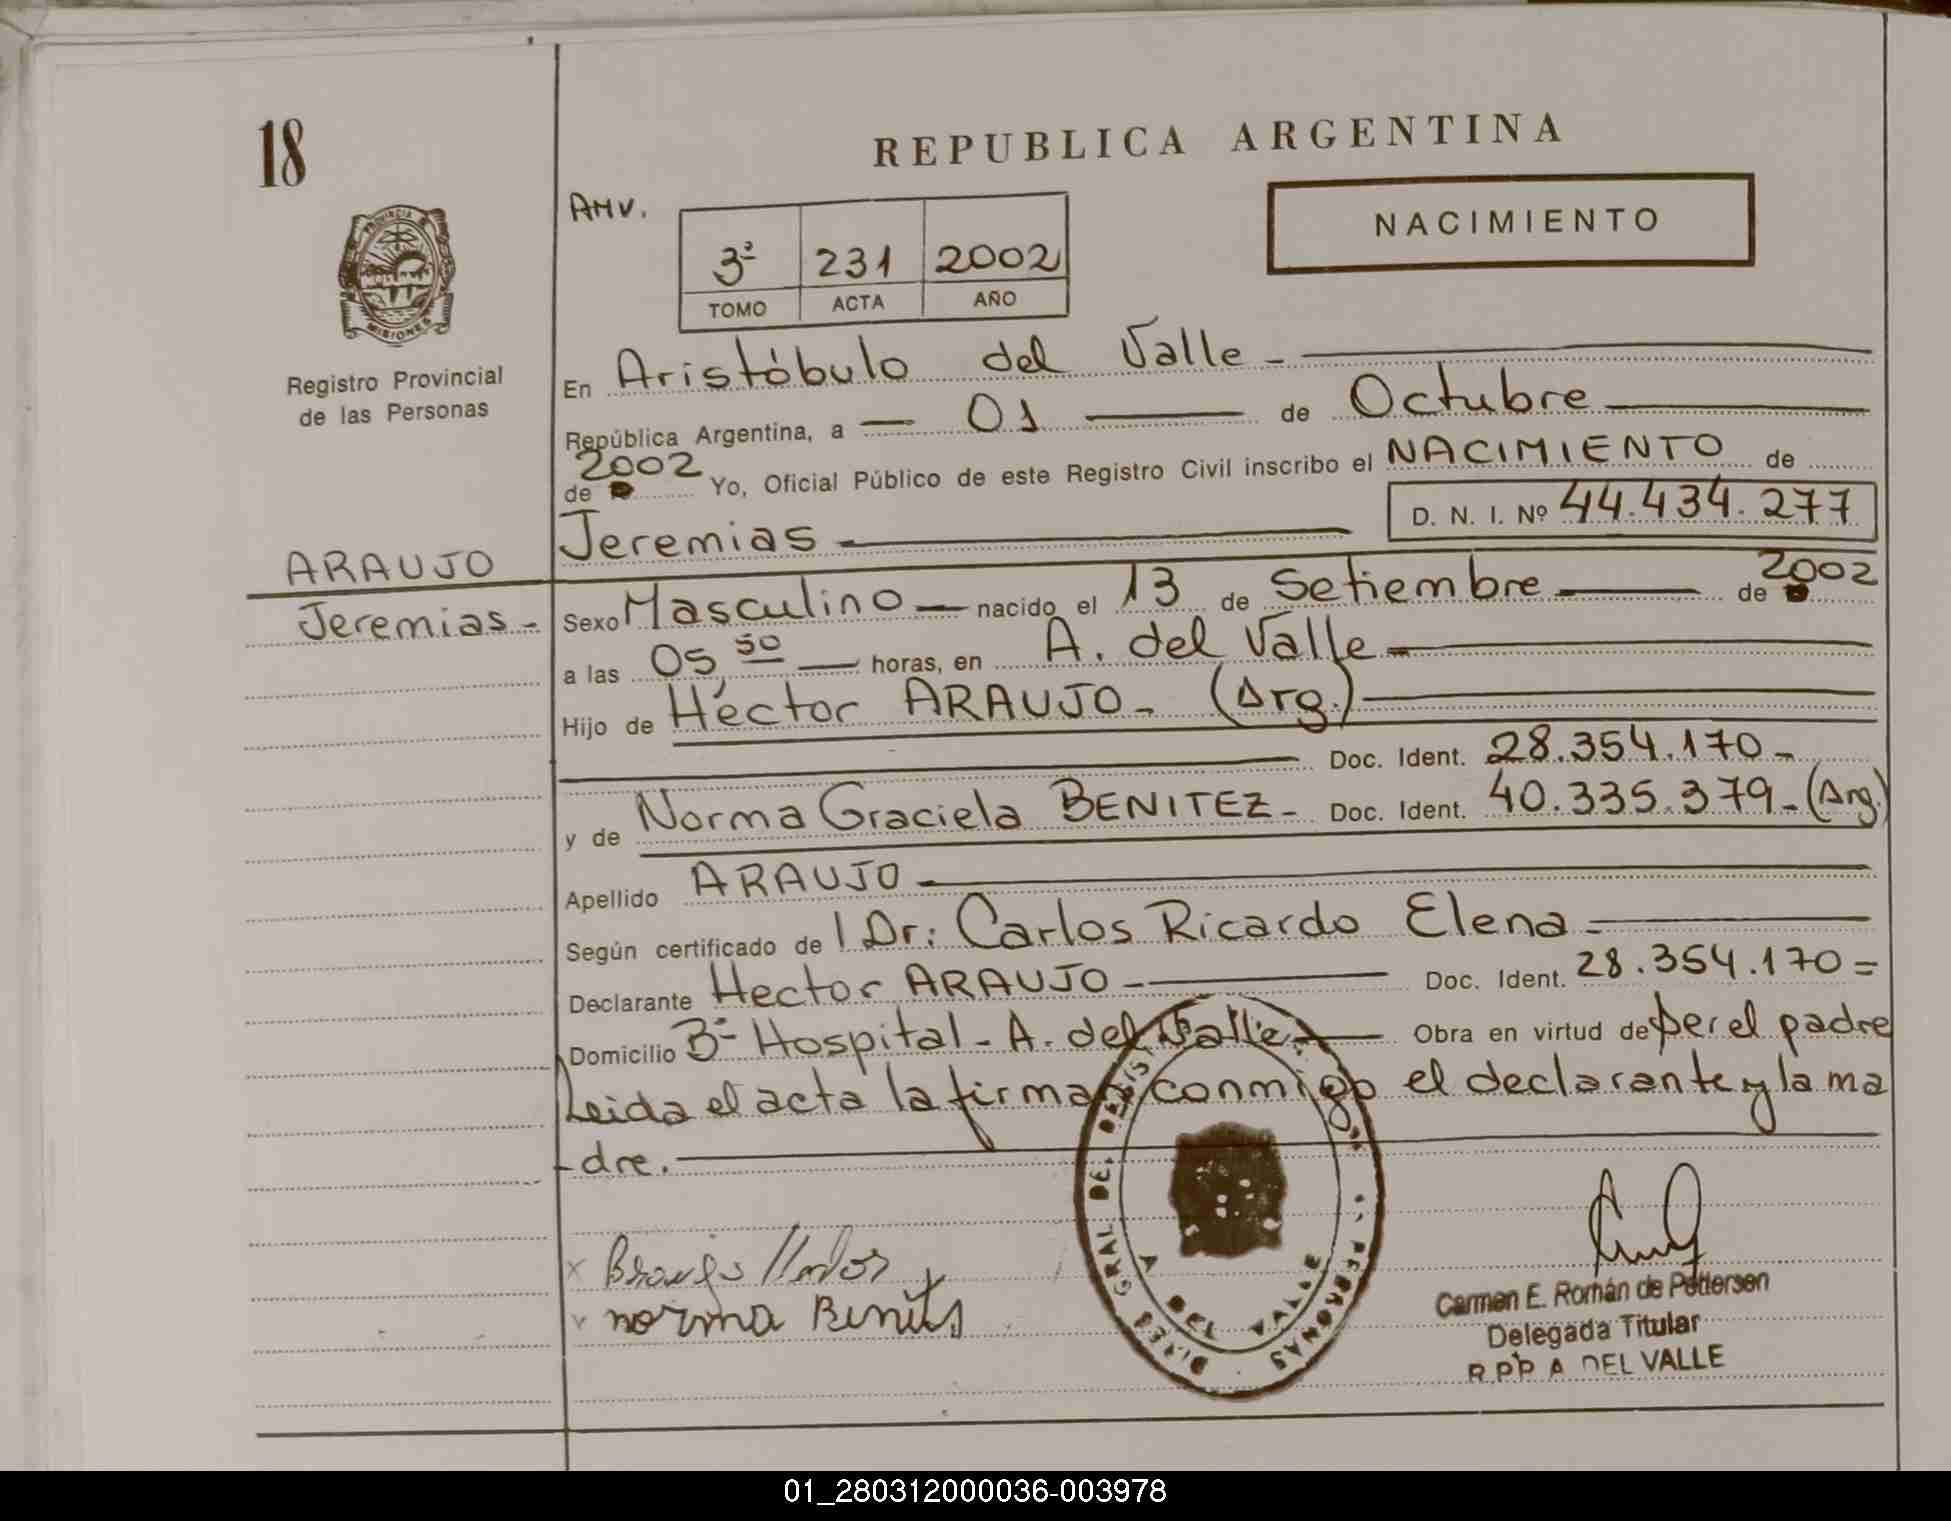 18
REPUBLICA ARGENTINA
AMV.
NACIMIENTO
3º 231 2002
TOMO ACTA AÑO
PROVINCIA DE
MISIONES
Registro Provincial
de las Personas
ARAUJO
Jeremias -
En Aristóbulo del Valle -
República Argentina, a - 01 - de Octubre
de 2002 Yo, Oficial Público de este Registro Civil inscribo el NACIMIENTO de
Jeremias - D. N. I. Nº 44.434.277
Sexo Masculino - nacido el 13 de Setiembre - de 2002
a las 05,50 - horas, en A. del Valle -
Hijo de Héctor ARAUJO - (Arg.)
Doc. Ident. 28.354.170 -
y de Norma Graciela BENITEZ - Doc. Ident. 40.335.379 - (Arg.)
Apellido ARAUJO -
Según certificado de Dr: Carlos Ricardo Elena -
Declarante Hector ARAUJO - Doc. Ident. 28.354.170 =
Domicilio Bº Hospital - A. del Valle - Obra en virtud de ser el padre
Leida el acta la firman conmigo el declarante y la ma
-dre.
norma Benites
GRAL DE
PERSONAS
Carmen E. Román de Pettersen
Delegada Titular
R.P.P. A. DEL VALLE
01_280312000036-003978